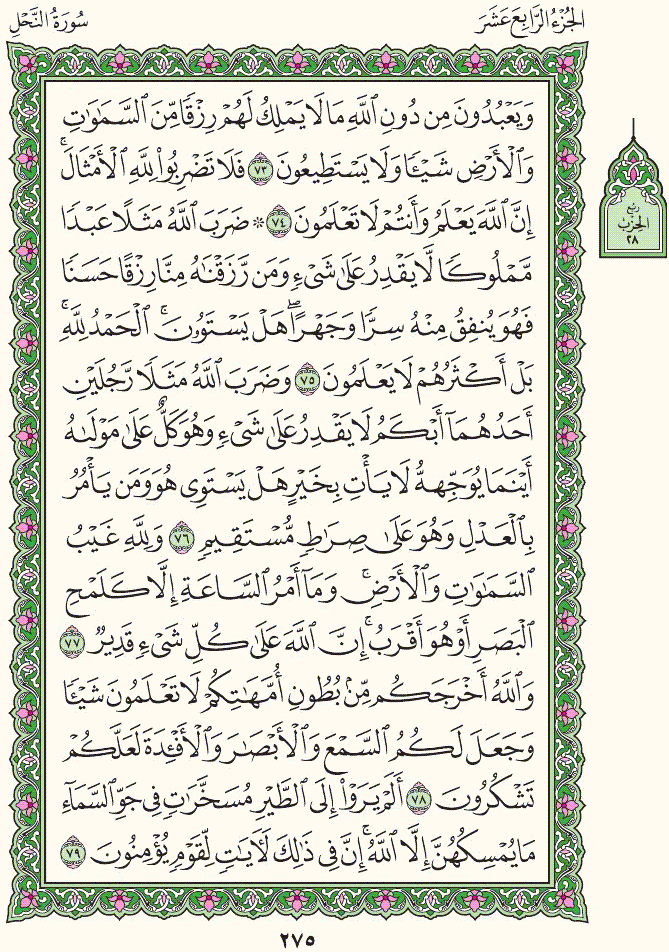 الجُزْءُ الرَّابِعَ عَشَرَ
سُورَةُ النَّحْلِ
وَيَعْبُدُونَ مِن دُونِ ٱللَّهِ مَا لَا يَمْلِكُ لَهُمْ رِزْقًا مِّنَ ٱلسَّمَٰوَٰتِ
وَٱلْأَرْضِ شَيْـًٔا وَلَا يَسْتَطِيعُونَ ٧٣ فَلَا تَضْرِبُوا۟ لِلَّهِ ٱلْأَمْثَالَ ۚ
إِنَّ ٱللَّهَ يَعْلَمُ وَأَنتُمْ لَا تَعْلَمُونَ ٧٤ * ضَرَبَ ٱللَّهُ مَثَلًا عَبْدًا
مَّمْلُوكًا لَّا يَقْدِرُ عَلَىٰ شَىْءٍ وَمَن رَّزَقْنَٰهُ مِنَّا رِزْقًا حَسَنًا
فَهُوَ يُنفِقُ مِنْهُ سِرًّا وَجَهْرًا ۖ هَلْ يَسْتَوُۥنَ ۚ ٱلْحَمْدُ لِلَّهِ ۚ
بَلْ أَكْثَرُهُمْ لَا يَعْلَمُونَ ٧٥ وَضَرَبَ ٱللَّهُ مَثَلًا رَّجُلَيْنِ
أَحَدُهُمَآ أَبْكَمُ لَا يَقْدِرُ عَلَىٰ شَىْءٍ وَهُوَ كَلٌّ عَلَىٰ مَوْلَىٰهُ
أَيْنَمَا يُوَجِّههُّ لَا يَأْتِ بِخَيْرٍ هَلْ يَسْتَوِى هُوَ وَمَن يَأْمُرُ
بِٱلْعَدْلِ وَهُوَ عَلَىٰ صِرَٰطٍ مُّسْتَقِيمٍ ٧٦ وَلِلَّهِ غَيْبُ
ٱلسَّمَٰوَٰتِ وَٱلْأَرْضِ ۚ وَمَآ أَمْرُ ٱلسَّاعَةِ إِلَّا كَلَمْحِ
ٱلْبَصَرِ أَوْ هُوَ أَقْرَبُ ۚ إِنَّ ٱللَّهَ عَلَىٰ كُلِّ شَىْءٍ قَدِيرٌ ٧٧
وَٱللَّهُ أَخْرَجَكُم مِّنۢ بُطُونِ أُمَّهَٰتِكُمْ لَا تَعْلَمُونَ شَيْـًٔا
وَجَعَلَ لَكُمُ ٱلسَّمْعَ وَٱلْأَبْصَٰرَ وَٱلْأَفْـِٔدَةَ لَعَلَّكُمْ
تَشْكُرُونَ ٧٨ أَلَمْ يَرَوْا۟ إِلَى ٱلطَّيْرِ مُسَخَّرَٰتٍ فِى جَوِّ ٱلسَّمَآءِ
مَا يُمْسِكُهُنَّ إِلَّا ٱللَّهُ ۗ إِنَّ فِى ذَٰلِكَ لَـَٔايَٰتٍ لِّقَوْمٍ يُؤْمِنُونَ ٧٩
رُبع
الحِزْب
٢٨
٢٧٥